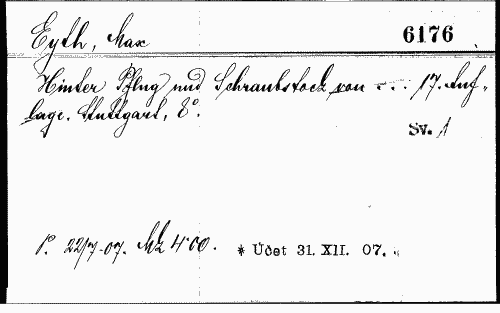 Eyth, Max
6176
Hinter Pflug und Schraubstock von ... 17. Auf-
lage. Stuttgart, 8°.
Sv. 1
P. 22/7-07. Mk 4·00.
* Účet 31. XII. 07.